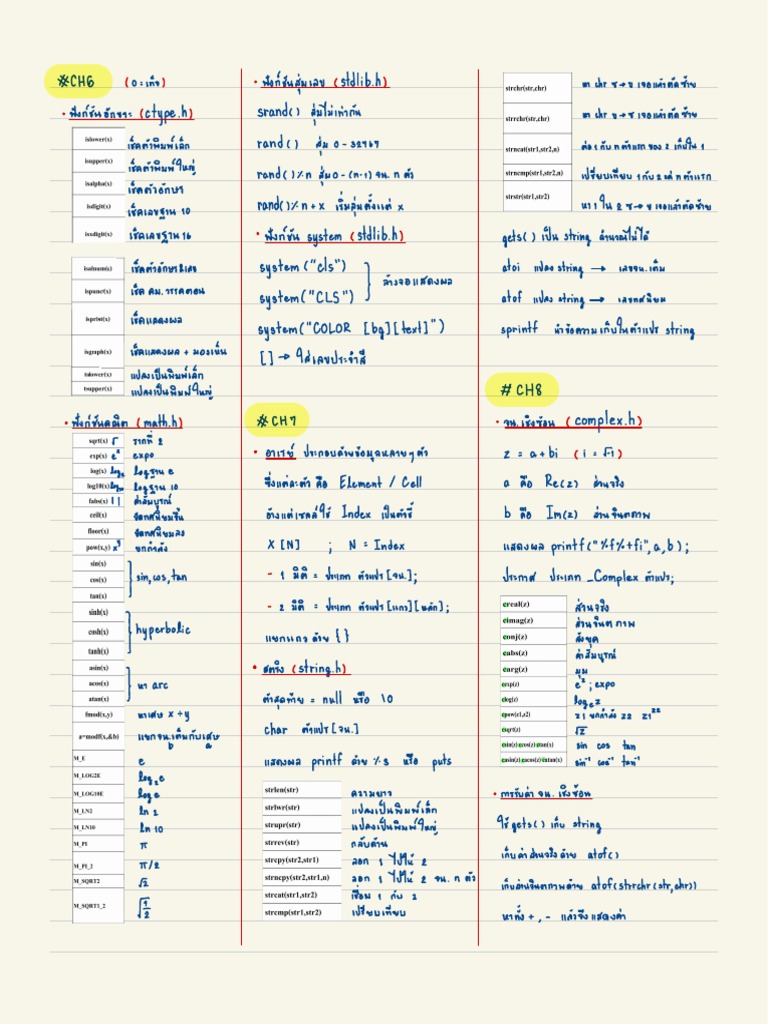 #CH6 (0=เท็จ)
• ฟังก์ชันอักขระ (ctype.h)
islower(x) เช็คตัวพิมพ์เล็ก
isupper(x) เช็คตัวพิมพ์ใหญ่
isalpha(x) เช็คตัวอักษร
isdigit(x) เช็คเลขฐาน 10
isxdigit(x) เช็คเลขฐาน 16
isalnum(x) เช็คตัวอักษร&เลข
ispunc(x) เช็ค คม.วรรคตอน
isprint(x) เช็คแสดงผล
isgraph(x) เช็คแสดงผล + มองเห็น
tolower(x) แปลงเป็นพิมพ์เล็ก
toupper(x) แปลงเป็นพิมพ์ใหญ่
• ฟังก์ชันคณิต (math.h)
sqrt(x) √ รากที่ 2
exp(x) eˣ expo
log(x) logₑ logฐาน e
log10(x) log₁₀ logฐาน 10
fabs(x) | | ค่าสัมบูรณ์
ceil(x) ปัดทศนิยมขึ้น
floor(x) ปัดทศนิยมลง
pow(x,y) xʸ ยกกำลัง
sin(x)
cos(x) sin,cos,tan
tan(x)
sinh(x)
cosh(x) hyperbolic
tanh(x)
asin(x)
acos(x) หา arc
atan(x)
fmod(x,y) หาเศษ x÷y
a=modf(x,&b) แยกจน.เต็มกับเศษ
b a
M_E e
M_LOG2E log₂e
M_LOG10E log e
M_LN2 ln 2
M_LN10 ln 10
M_PI π
M_PI_2 π/2
M_SQRT2 √2
M_SQRT1_2 √1/2
• ฟังก์ชันสุ่มเลข (stdlib.h)
srand() สุ่มไม่เท่ากัน
rand() สุ่ม 0-32767
rand()%n สุ่ม 0-(n-1) จน. n ตัว
rand()%n+x เริ่มสุ่มตั้งแต่ x
• ฟังก์ชัน system (stdlib.h)
system("cls")
ล้างจอแสดงผล
system("CLS")
system("COLOR [bg][text]")
[] → ใส่เลขประจำสี
#CH7
• อาเรย์ ประกอบด้วยข้อมูลหลายๆตัว
ซึ่งแต่ละตัว คือ Element / Cell
อ้างแต่เซลล์ใช้ Index เป็นตัวชี้
X [N] ; N = Index
- 1 มิติ = ประเภท ตัวแปร[จน.];
- 2 มิติ = ประเภท ตัวแปร[แถว][หลัก];
แยกแถว ด้วย { }
• สตริง (string.h)
ตัวสุดท้าย = null หรือ \0
char ตัวแปร[จน.]
แสดงผล printf ด้วย %s หรือ puts
strlen(str) ความยาว
strlwr(str) แปลงเป็นพิมพ์เล็ก
strupr(str) แปลงเป็นพิมพ์ใหญ่
strrev(str) กลับด้าน
strcpy(str2,str1) ลอก 1 ไปไว้ 2
strncpy(str2,str1,n) ลอก 1 ไปไว้ 2 จน. n ตัว
strcat(str1,str2) เชื่อม 1 กับ 2
strcmp(str1,str2) เปรียบเทียบ
strchr(str,chr) หา chr ซ→ข เจอแล้วตัดซ้าย
strrchr(str,chr) หา chr ข→ซ เจอแล้วตัดซ้าย
strncat(str1,str2,n) ต่อ 1 กับ n ตัวแรก ของ 2 เก็บใน 1
strncmp(str1,str2,n) เปรียบเทียบ 1 กับ 2 แค่ n ตัวแรก
strstr(str1,str2) หา 1 ใน 2 ซ→ข เจอแล้วตัดซ้าย
gets() เป็น string คำนวณไม่ได้
atoi แปลง string → เลขจน.เต็ม
atof แปลง string → เลขทศนิยม
sprintf นำข้อความเก็บในตัวแปร string
#CH8
• จน.เชิงซ้อน (complex.h)
z = a+bi (i = √-1)
a คือ Re(z) ส่วนจริง
b คือ Im(z) ส่วนจินตภาพ
แสดงผล printf("%f%+fi",a,b);
ประกาศ ประเภท _Complex ตัวแปร;
creal(z) ส่วนจริง
cimag(z) ส่วนจินตภาพ
conj(z) สังยุค
cabs(z) ค่าสัมบูรณ์
carg(z) มุม
cexp(z) eᶻ ; expo
clog(z) logₑz
cpow(z1,z2) z1 ยกกำลัง z2 z1ᶻ²
csqrt(z) √z
csin(z) ccos(z) ctan(z) sin cos tan
casin(z) cacos(z) catan(z) sin⁻¹ cos⁻¹ tan⁻¹
• การรับค่า จน. เชิงซ้อน
ใช้ gets() เก็บ string
เก็บค่าส่วนจริงด้วย atof()
เก็บส่วนจินตภาพด้วย atof(strchr(str,chr))
หาทั้ง +, - แล้วจึงแสดงค่า